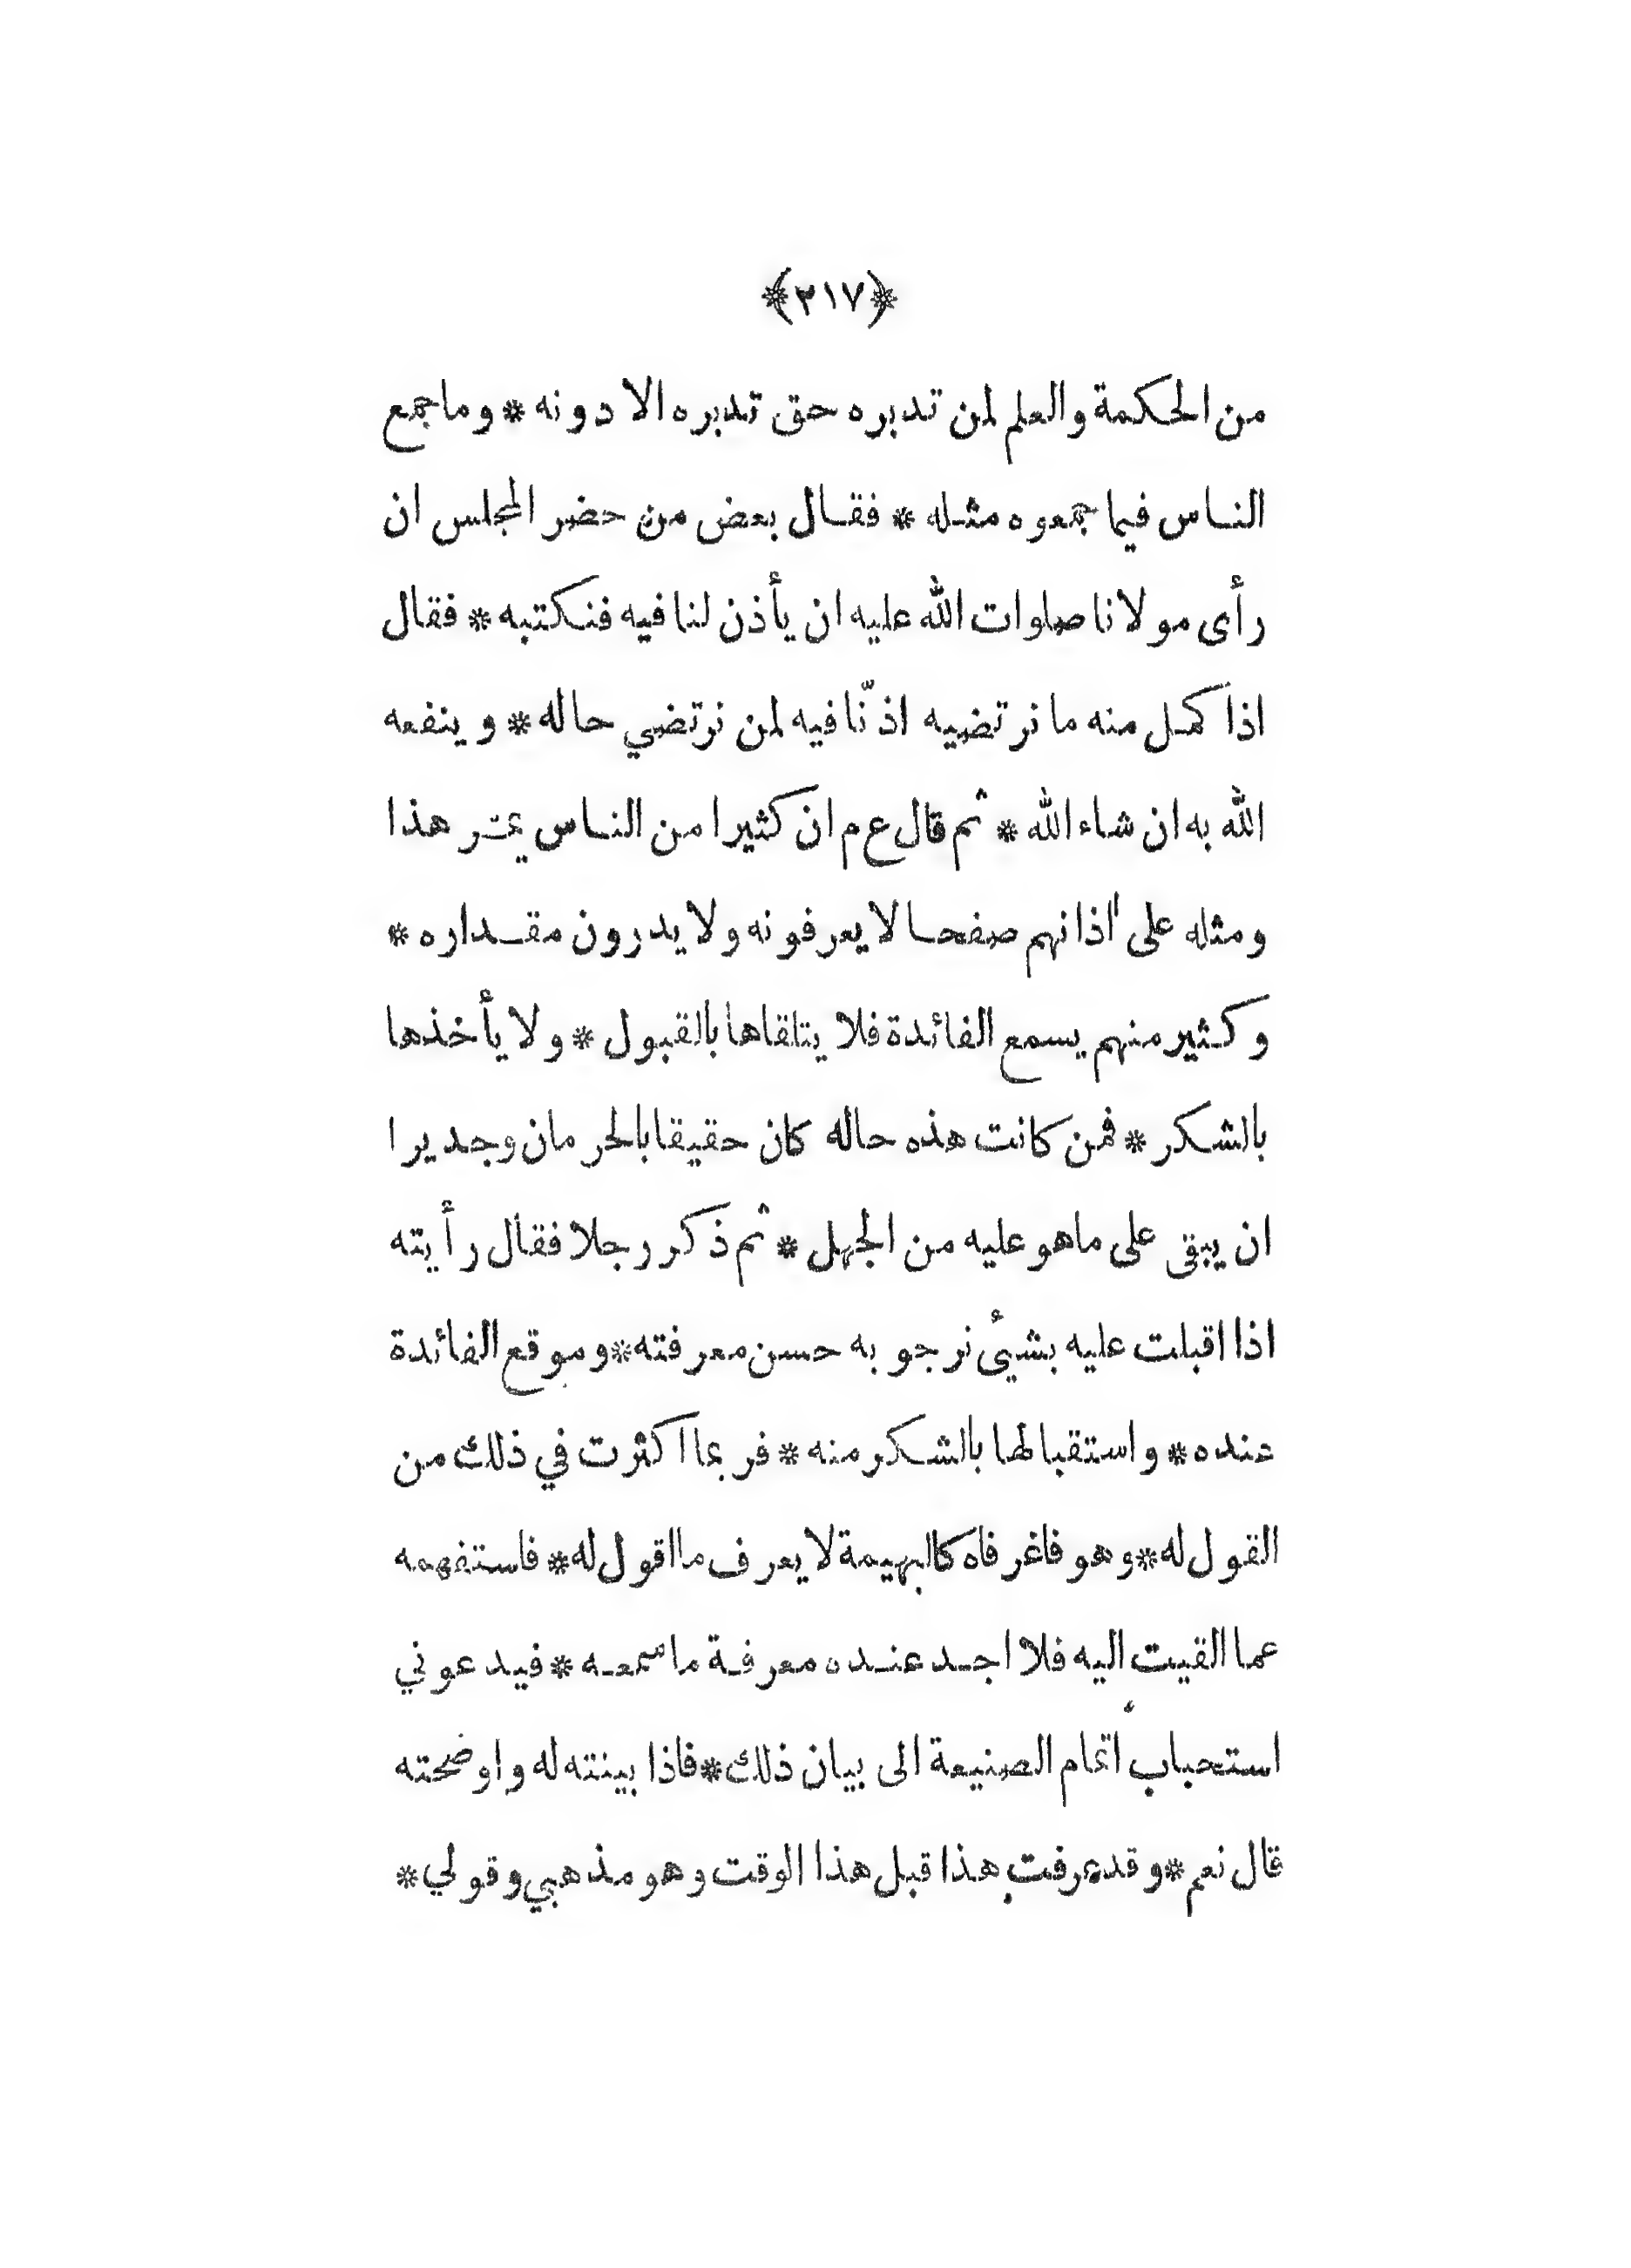 ﴿٢١٧﴾
من الحكمة والعلم لمن تدبره حق تدبره الا دونه * وما جمع
النـاس فيما جمعوه مثـله * فقـال بعض من حضر المجلس ان
رأى مولانا صلوات الله عليه ان يأذن لنا فيه فنكتبه * فقال
اذا كمـل منه ما نرتضيه اذنّا فيه لمن نرتضي حاله * وينفعه
الله به ان شاء الله * ثم قال ع م ان كثيرا من النـاس يمـر هذا
ومثله على اذانهم صفحـا لا يعرفونه ولا يدرون مقـداره *
وكـثير منهم يسمع الفائدة فلا يتلقاها بالقبول * ولا يأخذها
بالشكر * فمن كانت هذه حاله كان حقيقا بالحرمان وجديرا
ان يبقى على ما هو عليه من الجهل * ثم ذكر رجلا فقال رأيته
اذا اقبلت عليه بشيئ نرجو به حسن معرفته * وموقع الفائدة
عنده * واستقبالها بالشكر منه * فربما اكثرت في ذلك من
القول له * وهو فاغر فاه كالبهيمة لا يعرف ما اقول له * فاستفهمه
عما القيت اليه فلا اجـد عنـده معرفـة ما سمعـه * فيدعوني
استحباب اتمام الصنيعة الى بيان ذلك * فاذا بينته له واوضحته
قال نعم * وقد عرفت هذا قبل هذا الوقت وهو مذهبي وقولي *